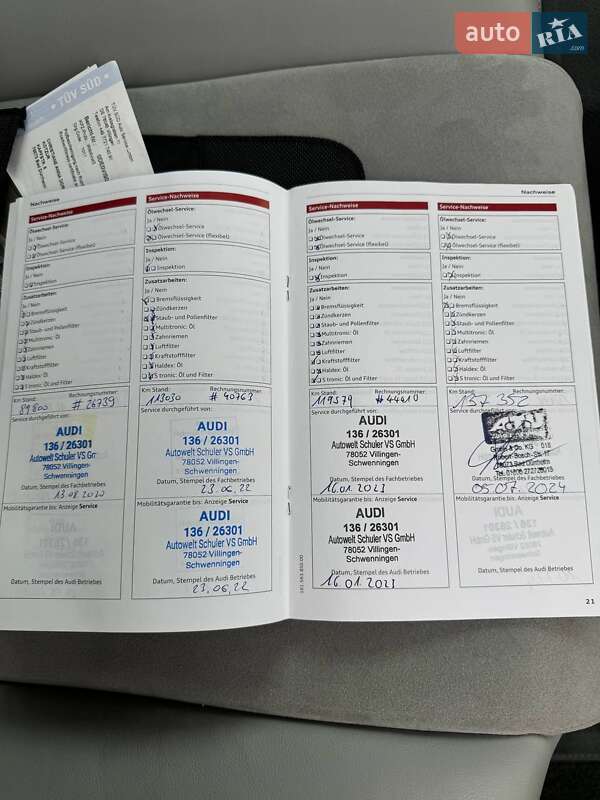 auto RIA.com
TÜV SÜD
Nachweise
Service-Nachweise
Ölwechsel-Service:
Ja / Nein
Ölwechsel-Service
Ölwechsel-Service (flexibel)
Inspektion:
Ja / Nein
Inspektion
Zusatzarbeiten:
Ja / Nein
Bremsflüssigkeit
Zündkerzen
Staub- und Pollenfilter
Multitronic: Öl
Zahnriemen
Luftfilter
Kraftstofffilter
Haldex: Öl
S tronic: Öl und Filter
Km Stand: Rechnungsnummer:
89800 # 26739
Service durchgeführt von:
AUDI
136 / 26301
Autowelt Schuler VS Gm
78052 Villingen-
Schwenningen
Datum, Stempel des Fachbetriebes
13.08 2020
Mobilitätsgarantie bis: Anzeige Service
Datum, Stempel des Audi Betriebes
Service-Nachweise
Ölwechsel-Service:
Ja / Nein
Ölwechsel-Service
Ölwechsel-Service (flexibel)
Inspektion:
Ja / Nein
Inspektion
Zusatzarbeiten:
Ja / Nein
Bremsflüssigkeit
Zündkerzen
Staub- und Pollenfilter
Multitronic: Öl
Zahnriemen
Luftfilter
Kraftstofffilter
Haldex: Öl
S tronic: Öl und Filter
Km Stand: Rechnungsnummer:
113030 # 40763
Service durchgeführt von:
AUDI
136 / 26301
Autowelt Schuler VS GmbH
78052 Villingen-
Schwenningen
Datum, Stempel des Fachbetriebes
23.06.22
Mobilitätsgarantie bis: Anzeige Service
AUDI
136 / 26301
Autowelt Schuler VS GmbH
78052 Villingen-
Schwenningen
Datum, Stempel des Audi Betriebes
23.06.22
Nachweise
Service-Nachweise
Ölwechsel-Service:
Ja / Nein
Ölwechsel-Service
Ölwechsel-Service (flexibel)
Inspektion:
Ja / Nein
Inspektion
Zusatzarbeiten:
Ja / Nein
Bremsflüssigkeit
Zündkerzen
Staub- und Pollenfilter
Multitronic: Öl
Zahnriemen
Luftfilter
Kraftstofffilter
Haldex: Öl
S tronic: Öl und Filter
Km Stand: Rechnungsnummer:
119579 # 44610
Service durchgeführt von:
AUDI
136 / 26301
Autowelt Schuler VS GmbH
78052 Villingen-
Schwenningen
Datum, Stempel des Fachbetriebes
16.01.2023
Mobilitätsgarantie bis: Anzeige Service
AUDI
136 / 26301
Autowelt Schuler VS GmbH
78052 Villingen-
Schwenningen
Datum, Stempel des Audi Betriebes
16.01.2023
Service-Nachweise
Ölwechsel-Service:
Ja / Nein
Ölwechsel-Service
Ölwechsel-Service (flexibel)
Inspektion:
Ja / Nein
Inspektion
Zusatzarbeiten:
Ja / Nein
Bremsflüssigkeit
Zündkerzen
Staub- und Pollenfilter
Multitronic: Öl
Zahnriemen
Luftfilter
Kraftstofffilter
Haldex: Öl
S tronic: Öl und Filter
Km Stand: Rechnungsnummer:
157 352
Service durchgeführt von:
GmbH & Co. KG
Robert-Bosch-Str. 17
78073 Bad Dürrheim
Datum, Stempel des Fachbetriebes
05.07.2024
Mobilitätsgarantie bis: Anzeige Service
Datum, Stempel des Audi Betriebes
21